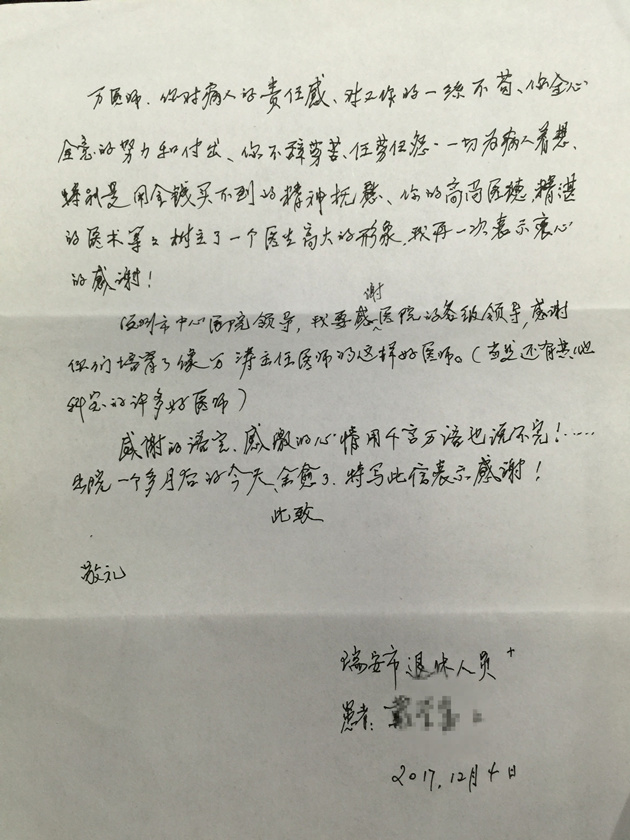 万医师、你对病人的责任感、对工作的一丝不苟、你全心
全意的努力和付出、你不辞劳苦、任劳任怨、一切为病人着想、
特别是用金钱买不到的精神抚慰、你的高尚医德 精湛
的医术等等 树立了一个医生高大的形象,我再一次表示衷心
的感谢!
温州市中心医院领导,我要感谢医院的各级领导,感谢
你们培养了像万涛主任医师的这样好医师。(当然还有其他
科室的许多好医师)
感谢的语言、感激的心情用千言万语也说不完!……
出院一个多月后的今天,全愈了、特写此信表示感谢!
此致
敬礼
瑞安市退休人员
患者:
2017.12月4日